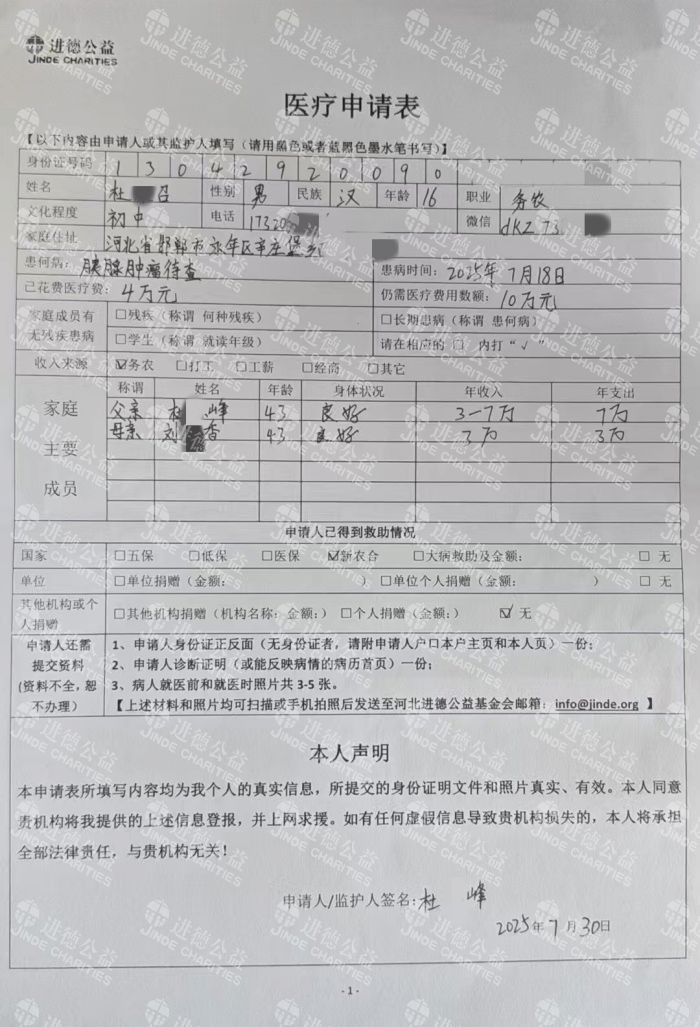 进德公益
JINDE CHARITIES
医疗申请表
【以下内容由申请人或其监护人填写（请用黑色或者蓝黑色墨水笔书写）】
身份证号码 1 3 0 4 2 9 2 0 0 9 0
姓名 杜 召 性别 男 民族 汉 年龄 16 职业 务农
文化程度 初中 电话 17320 微信 dkz73
家庭住址 河北省邯郸市永年区辛庄堡乡
患何病：胰腺肿瘤待查 患病时间：2025年7月18日
已花费医疗费：4万元 仍需医疗费用数额：10万元
家庭成员有无残疾患病 □残疾（称谓 何种残疾） □长期患病（称谓 患何病）
□学生（称谓 就读年级） 请在相应的 □ 内打“√”
收入来源 ☑务农 □打工 □工薪 □经商 □其它
家庭主要成员 称谓 姓名 年龄 身体状况 年收入 年支出
父亲 杜 峰 43 良好 3-7万 7万
母亲 刘 香 43 良好 3万 3万
申请人已得到救助情况
国家 □五保 □低保 □医保 ☑新农合 □大病救助及金额： □ 无
单位 □单位捐赠（金额： ） □单位个人捐赠（金额： ） □ 无
其他机构或个人捐赠 □其他机构捐赠（机构名称：金额：） □个人捐赠（金额：） ☑ 无
申请人还需提交资料（资料不全，恕不办理）
1、申请人身份证正反面（无身份证者，请附申请人户口本户主页和本人页）一份；
2、申请人诊断证明（或能反映病情的病历首页）一份；
3、病人就医前和就医时照片共 3-5 张。
【上述材料和照片均可扫描或手机拍照后发送至河北进德公益基金会邮箱：info@jinde.org 】
本人声明
本申请表所填写内容均为我个人的真实信息，所提交的身份证明文件和照片真实、有效。本人同意
贵机构将我提供的上述信息登报，并上网求援。如有任何虚假信息导致贵机构损失的，本人将承担
全部法律责任，与贵机构无关！
申请人/监护人签名：杜 峰
2025年7月30日
- 1 -